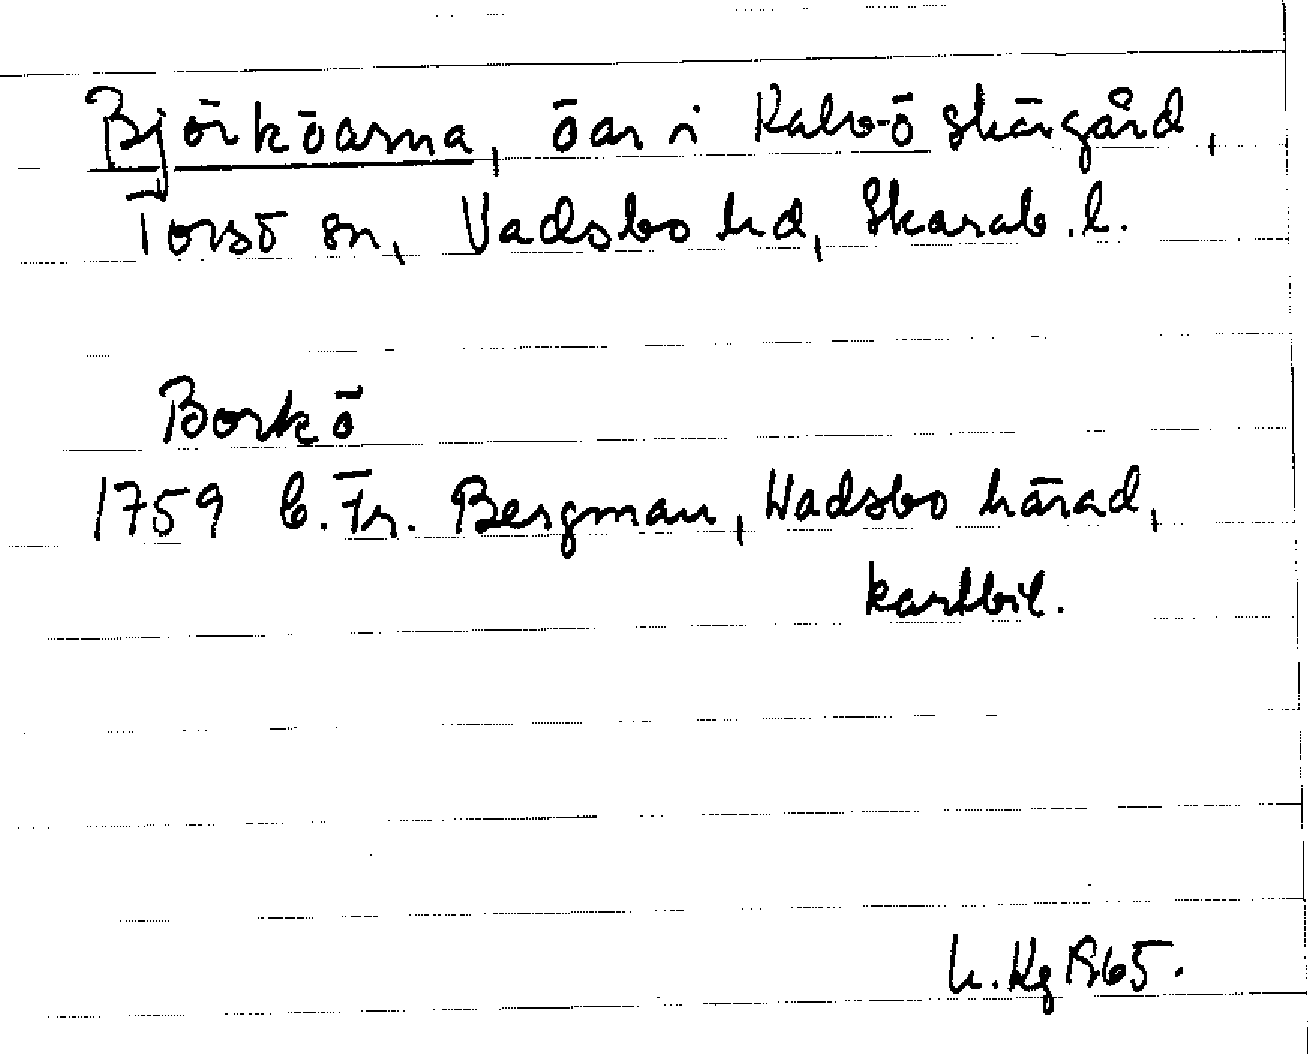 Björköarna, öar i Kalv-ö skärgård,
Torsö sn, Vadsbo hd, Skarab. l.
Borkö
1759 C. Fr. Bergman, Wadsbo härad,
kartbil.
h. Kg 1965.